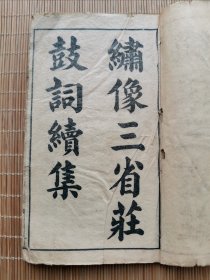 繡像三省莊
鼓詞續集